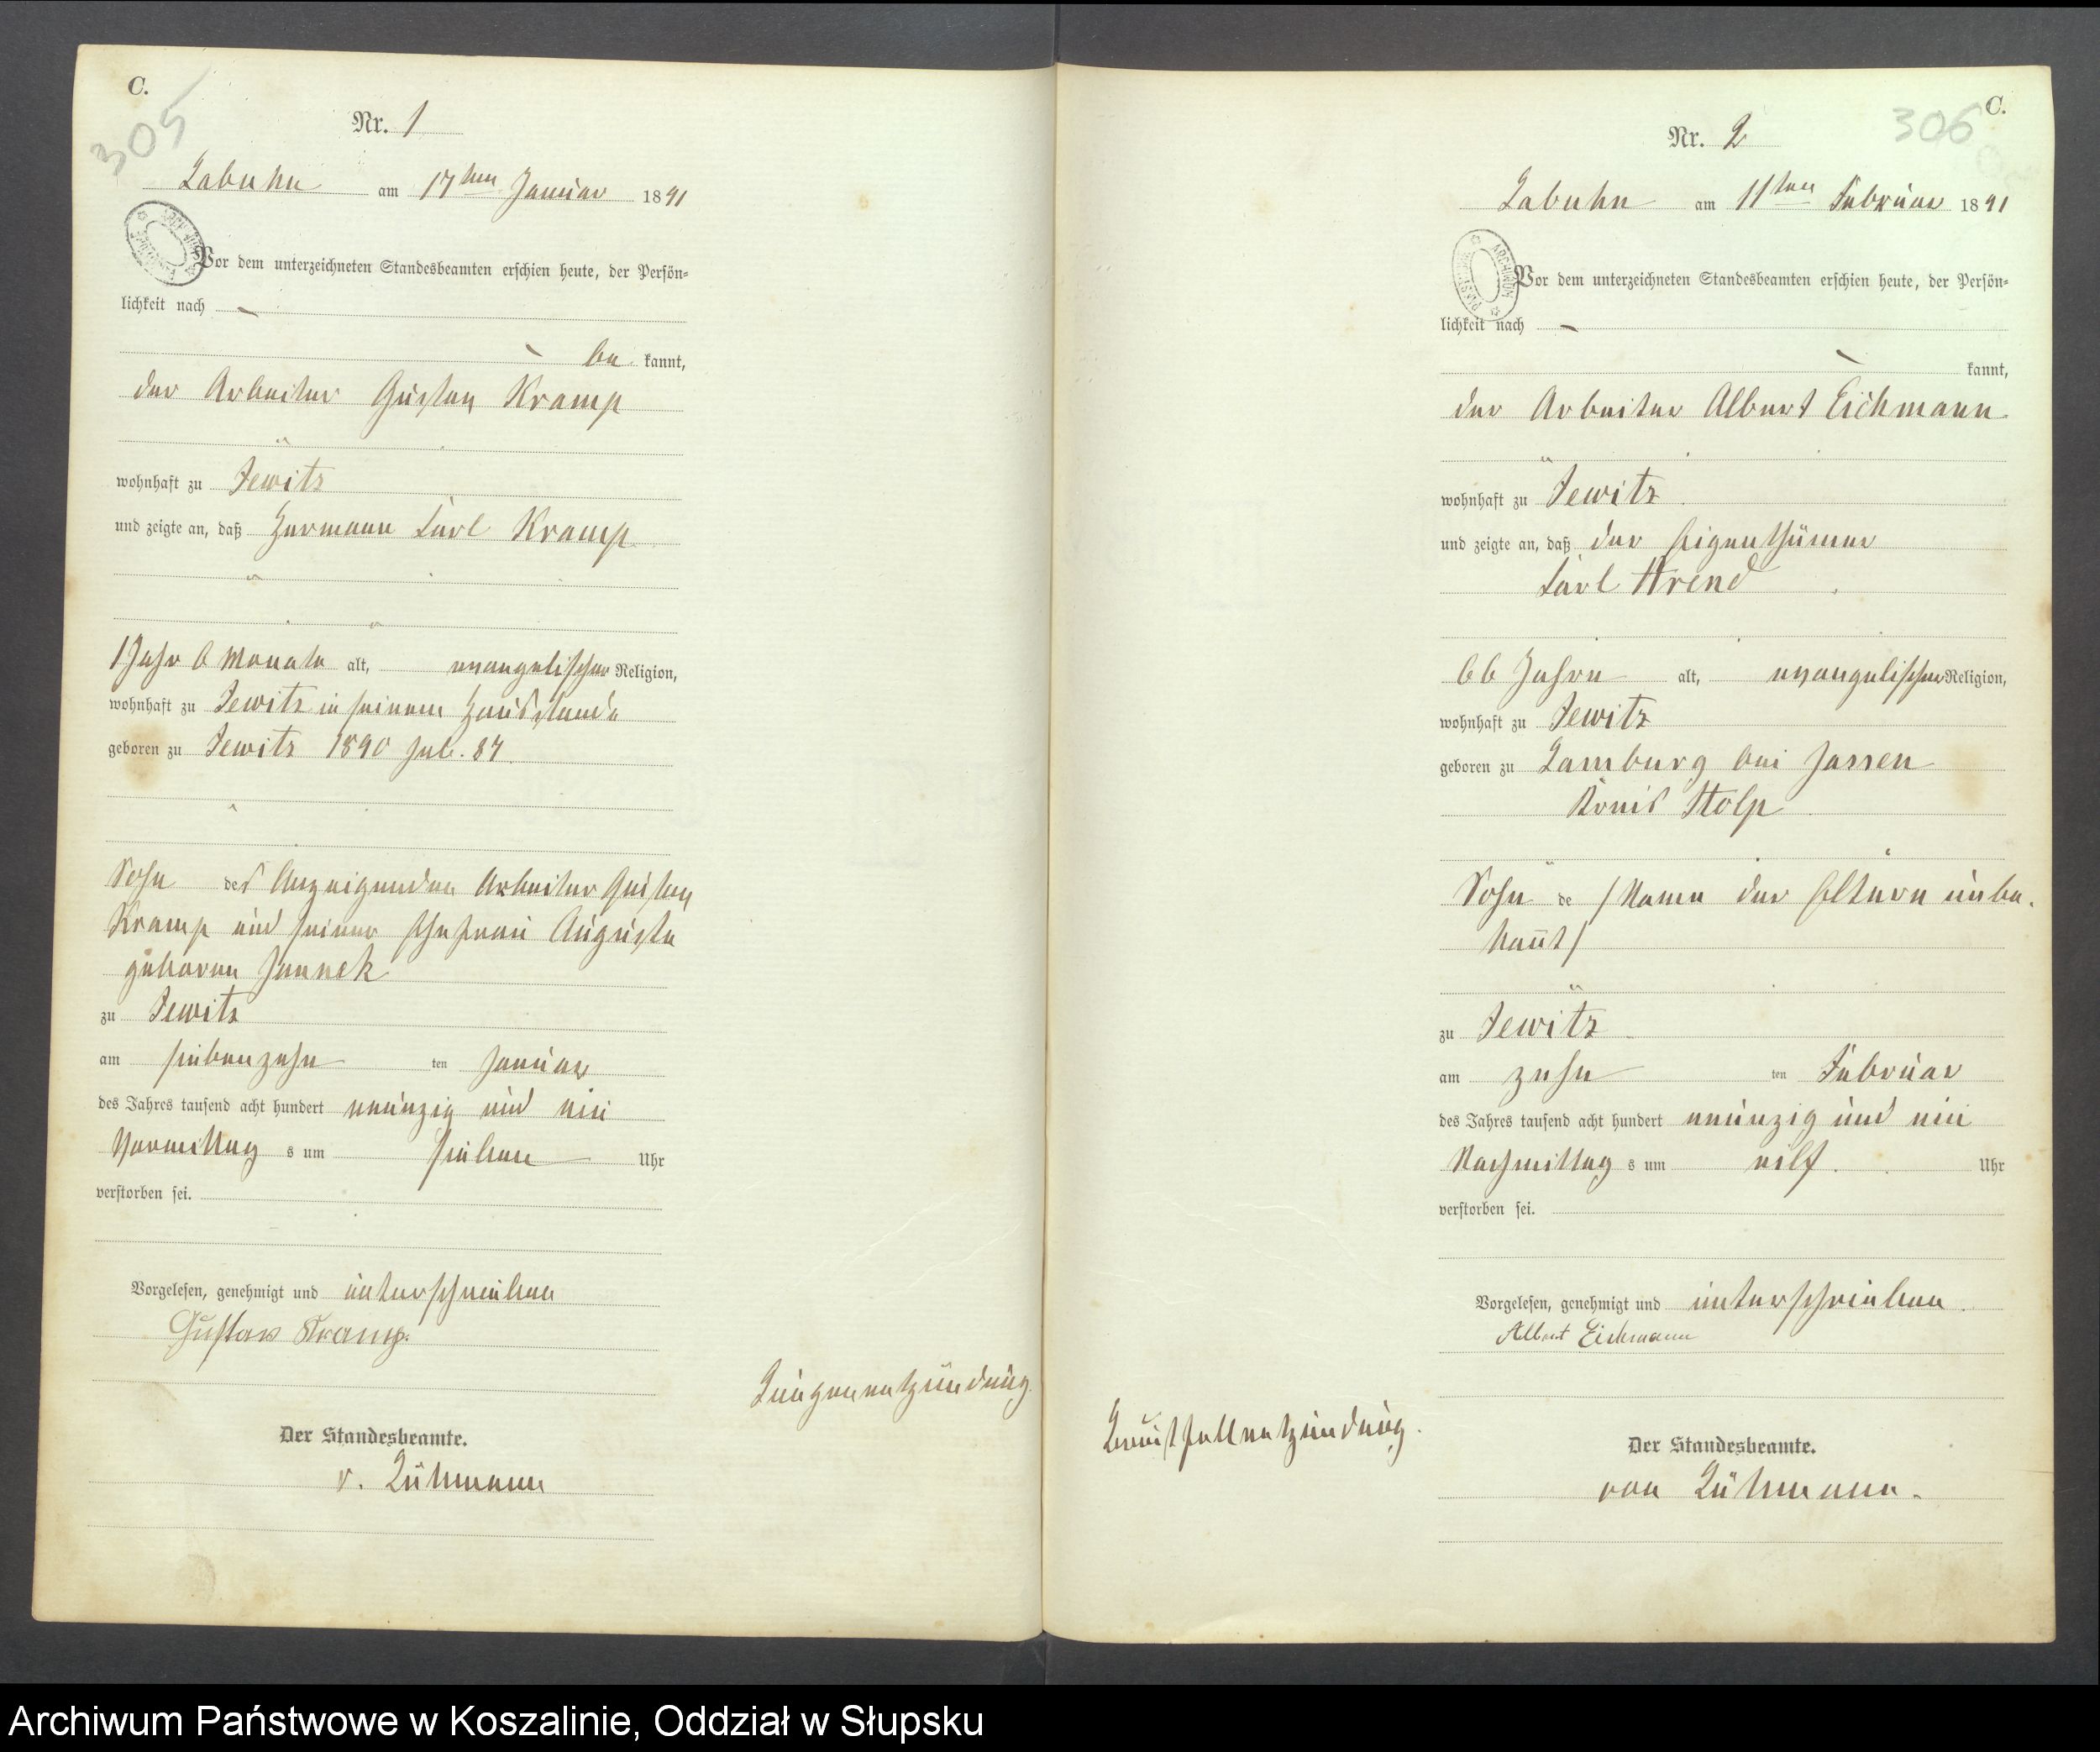 C.
305
Nr. 1
Labuhn am 17ten Januar 1891
Vor dem unterzeichneten Standesbeamten erschien heute, der Persön-
lichkeit nach
be kannt,
der Arbeiter Gustav Kramp
wohnhaft zu Jewitz
und zeigte an, daß Hermann Carl Kramp
1 Jahr 6 Monate alt, evangelischer Religion,
wohnhaft zu Jewitz in seinem Hausstande
geboren zu Jewitz 1890
Sohn des Anzeigenden Arbeiter Gustav
Kramp und seiner Ehefrau Auguste
geboren Jannek
zu Jewitz
am siebenzehn ten Januar
des Jahres tausend acht hundert neunzig und ein
Vormittag s um sieben Uhr
verstorben sei.
Vorgelesen, genehmigt und unterschrieben
Gustav Kramp.
Lungenentzündung.
Der Standesbeamte.
v. Lühmann
C.
306
Nr. 2
Labuhn am 11ten Februar 1891
ARCHIWUM
Vor dem unterzeichneten Standesbeamten erschien heute, der Persön-
lichkeit nach
kannt,
der Arbeiter Albert Eichmann
wohnhaft zu Jewitz
und zeigte an, daß der Eigenthümer
Carl Arend
66 Jahre alt, evangelischer Religion,
wohnhaft zu Jewitz
geboren zu Lamburg bei Jassen
Kreis Stolp
Sohn de /Name der Eltern unbe-
kannt/
zu Jewitz
am zehn ten Februar
des Jahres tausend acht hundert neunzig und ein
Nachmittag s um eilf. Uhr
verstorben sei.
Vorgelesen, genehmigt und unterschrieben.
Albert Eichmann
Brustfellentzündung.
Der Standesbeamte.
von Lühmann.
Archiwum Państwowe w Koszalinie, Oddział w Słupsku